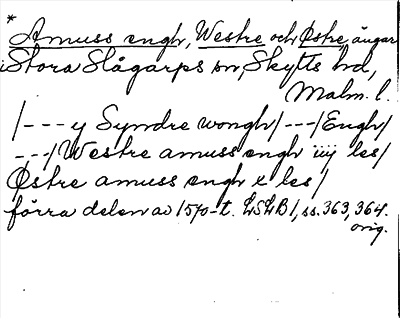 * Amuss engh, Westre och Østre, ängar
i Stora Slågarps sn, Skytts hd,
Malm. l.
/--- y Syndre wongh/---/Engh/
---/Westre amuss engh iiij les/
Østre amuss engh x les/
förra delen av 1570-t. LSLB 1, ss. 363, 364.
orig.